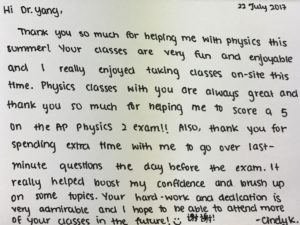 Hi Dr. Yang,
22 July 2017
Thank you so much for helping me with physics this
summer! Your classes are very fun and enjoyable
and I really enjoyed taking classes on-site this
time. Physics classes with you are always great and
thank you so much for helping me to score a 5
on the AP Physics 2 exam!! Also, thank you for
spending extra time with me to go over last-
minute questions the day before the exam. It
really helped boost my confidence and brush up
on some topics. Your hard-work and dedication is
very admirable and I hope to be able to attend more
of your classes in the future! 謝謝!
- Cindy K.